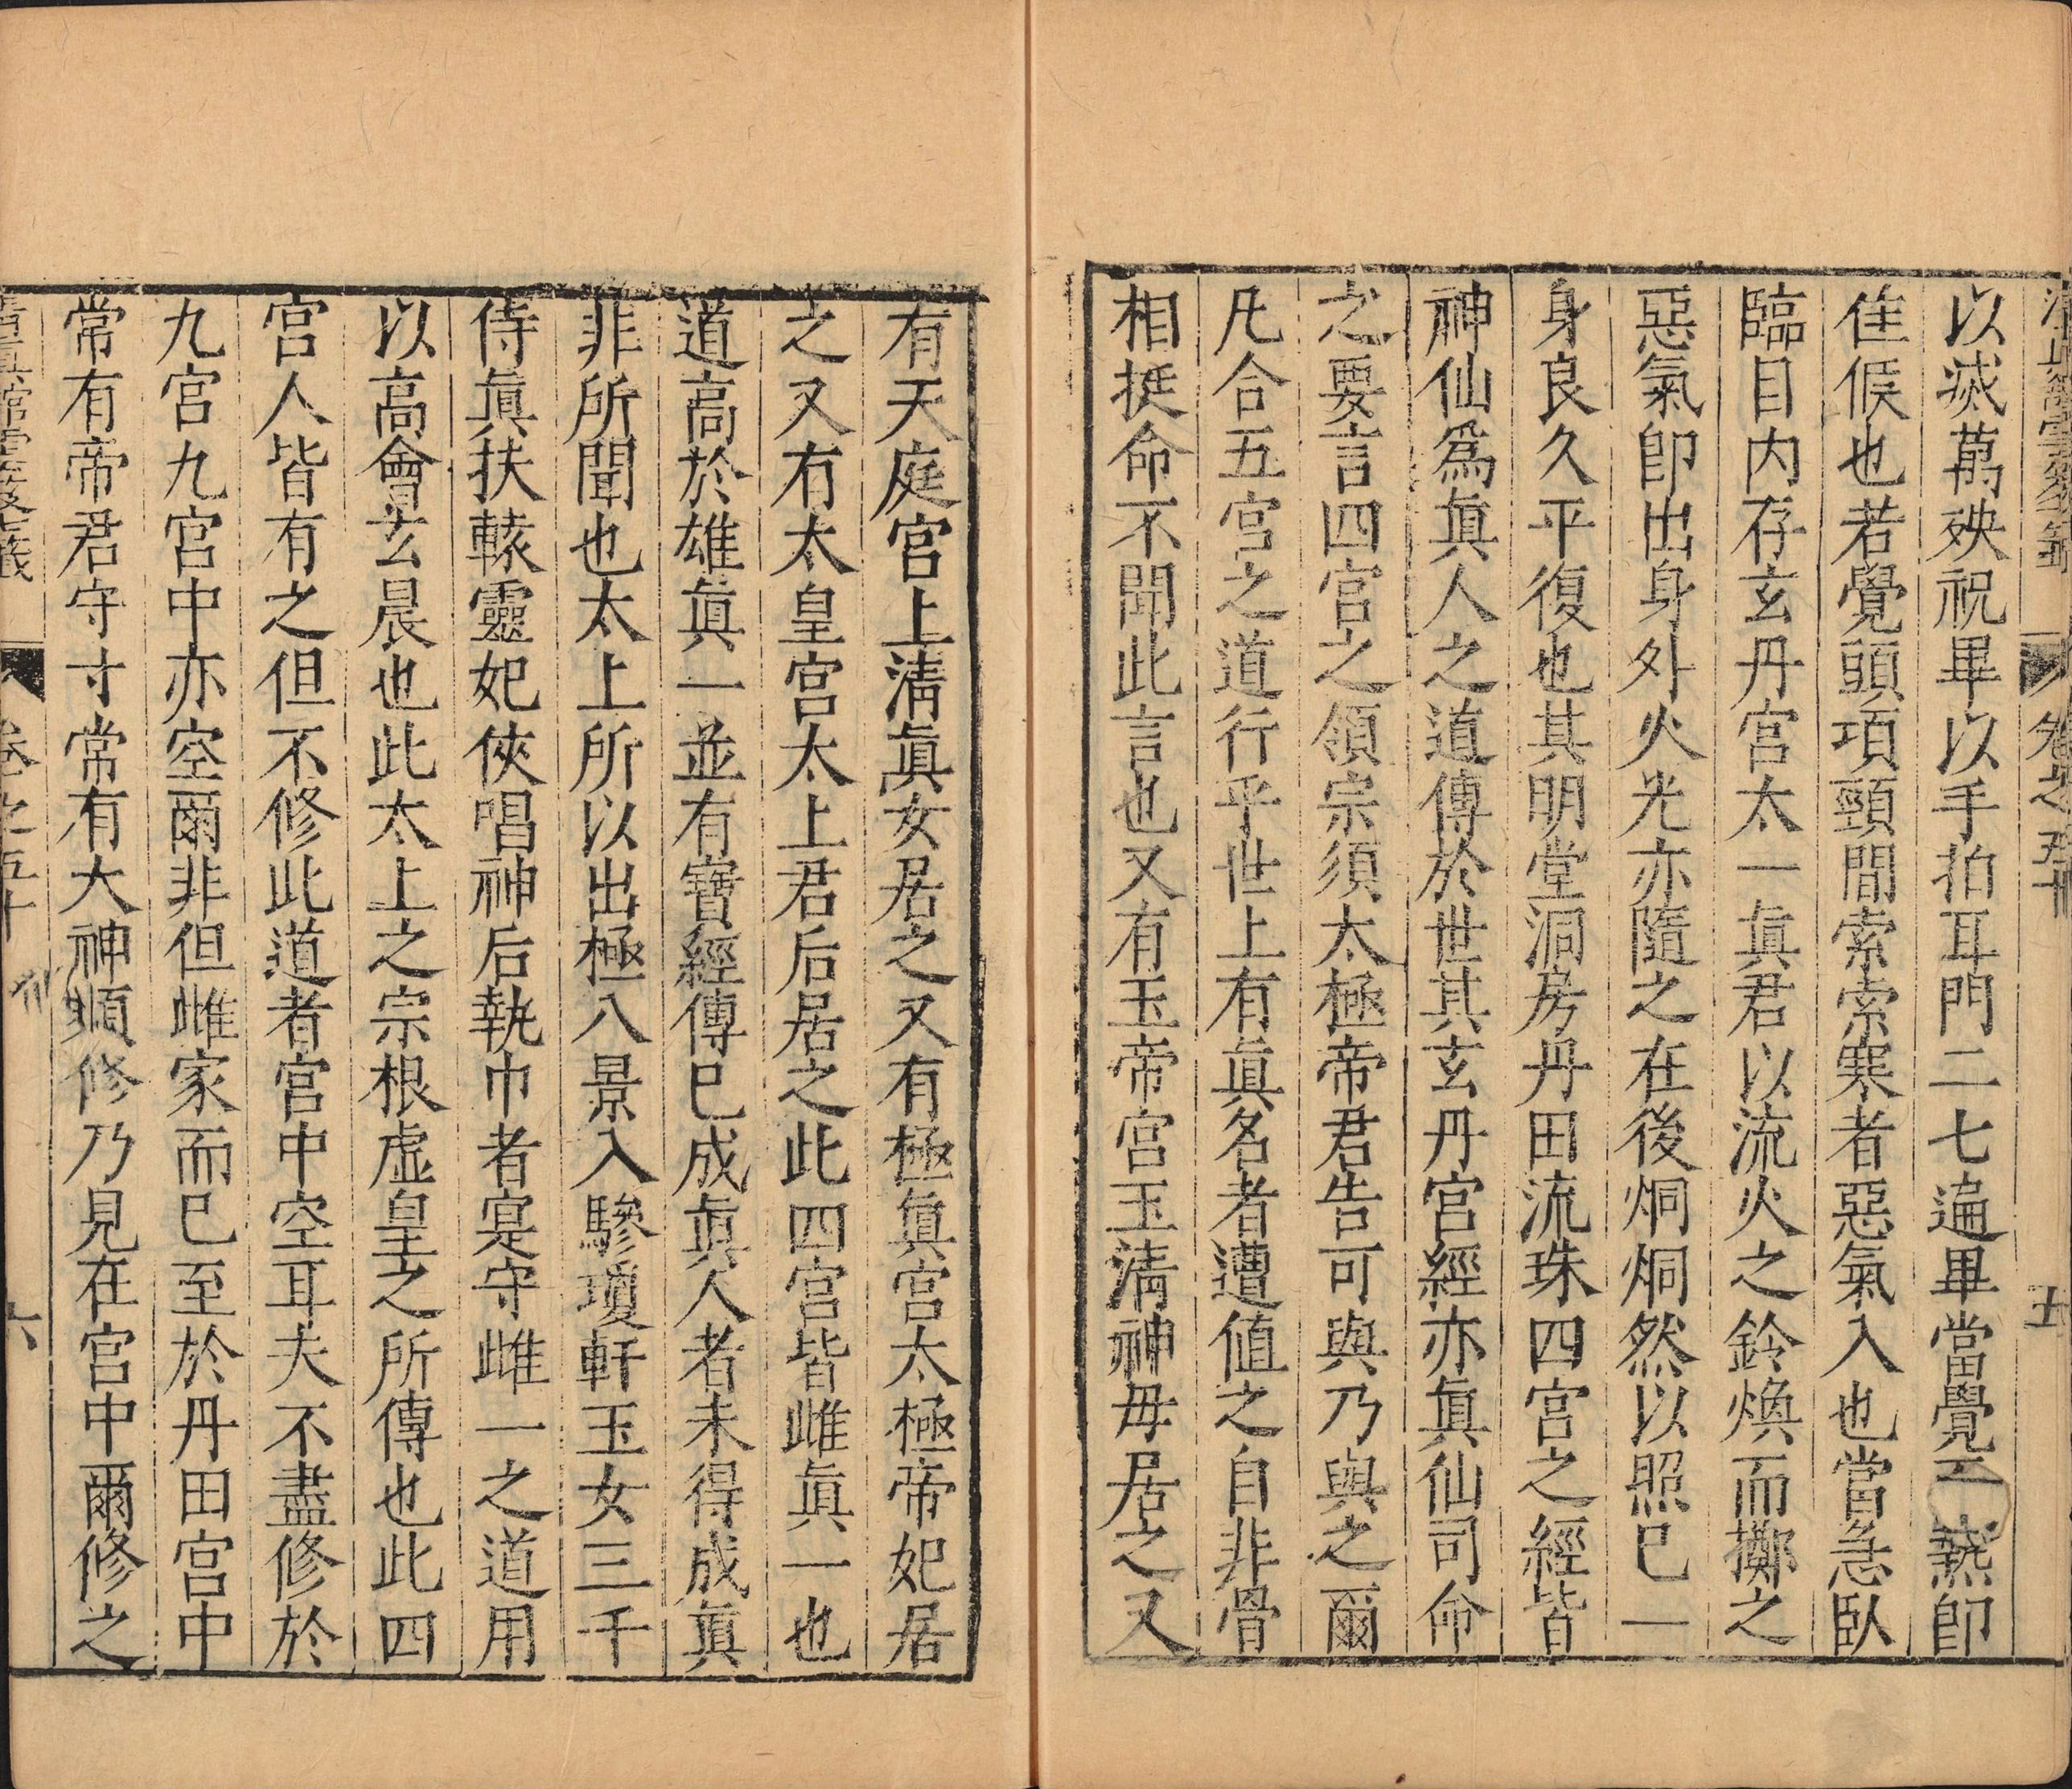 以滅萬殃祝畢以手拍耳門二七遍畢當覺𤍠即
隹候也若覺頭項頸間索索寒者惡氣入也當急臥
臨目内存玄丹宮太一眞君以流火之鈴煥而擲之
惡氣即出身外火光亦隨之在後炯炯然以照已一
身良久平復也其明堂洞房丹田流珠四宮之經皆
神仙爲眞人之道傳於世其玄丹宮經亦眞仙司命
之要言四宮之領宗須太極帝君告可與乃與之爾
凡合五宮之道行乎世上有眞名者遭値之自非骨
相挺命不聞此言也又有玉帝宮玉淸神母居之又
有天庭宮上淸眞女居之又有極眞宮太極帝妃居
之又有太皇宮太上君后居之此四宮皆雌眞一也
道高於雄眞一並有寶經傳已成眞人者未得成眞
非所聞也太上所以出極八景入驂瓊軒玉女三千
侍眞扶轅靈妃俠唱神后執巾者寔守雌一之道用
以高會玄晨也此太上之宗根虛皇之所傳也此四
宮人皆有之但不修此道者宮中空耳夫不盡修於
九宮九宮中亦空爾非但雌家而已至於丹田宮中
常有帝君守寸常有大神順修乃見在宮中爾修之
卷之五十
六